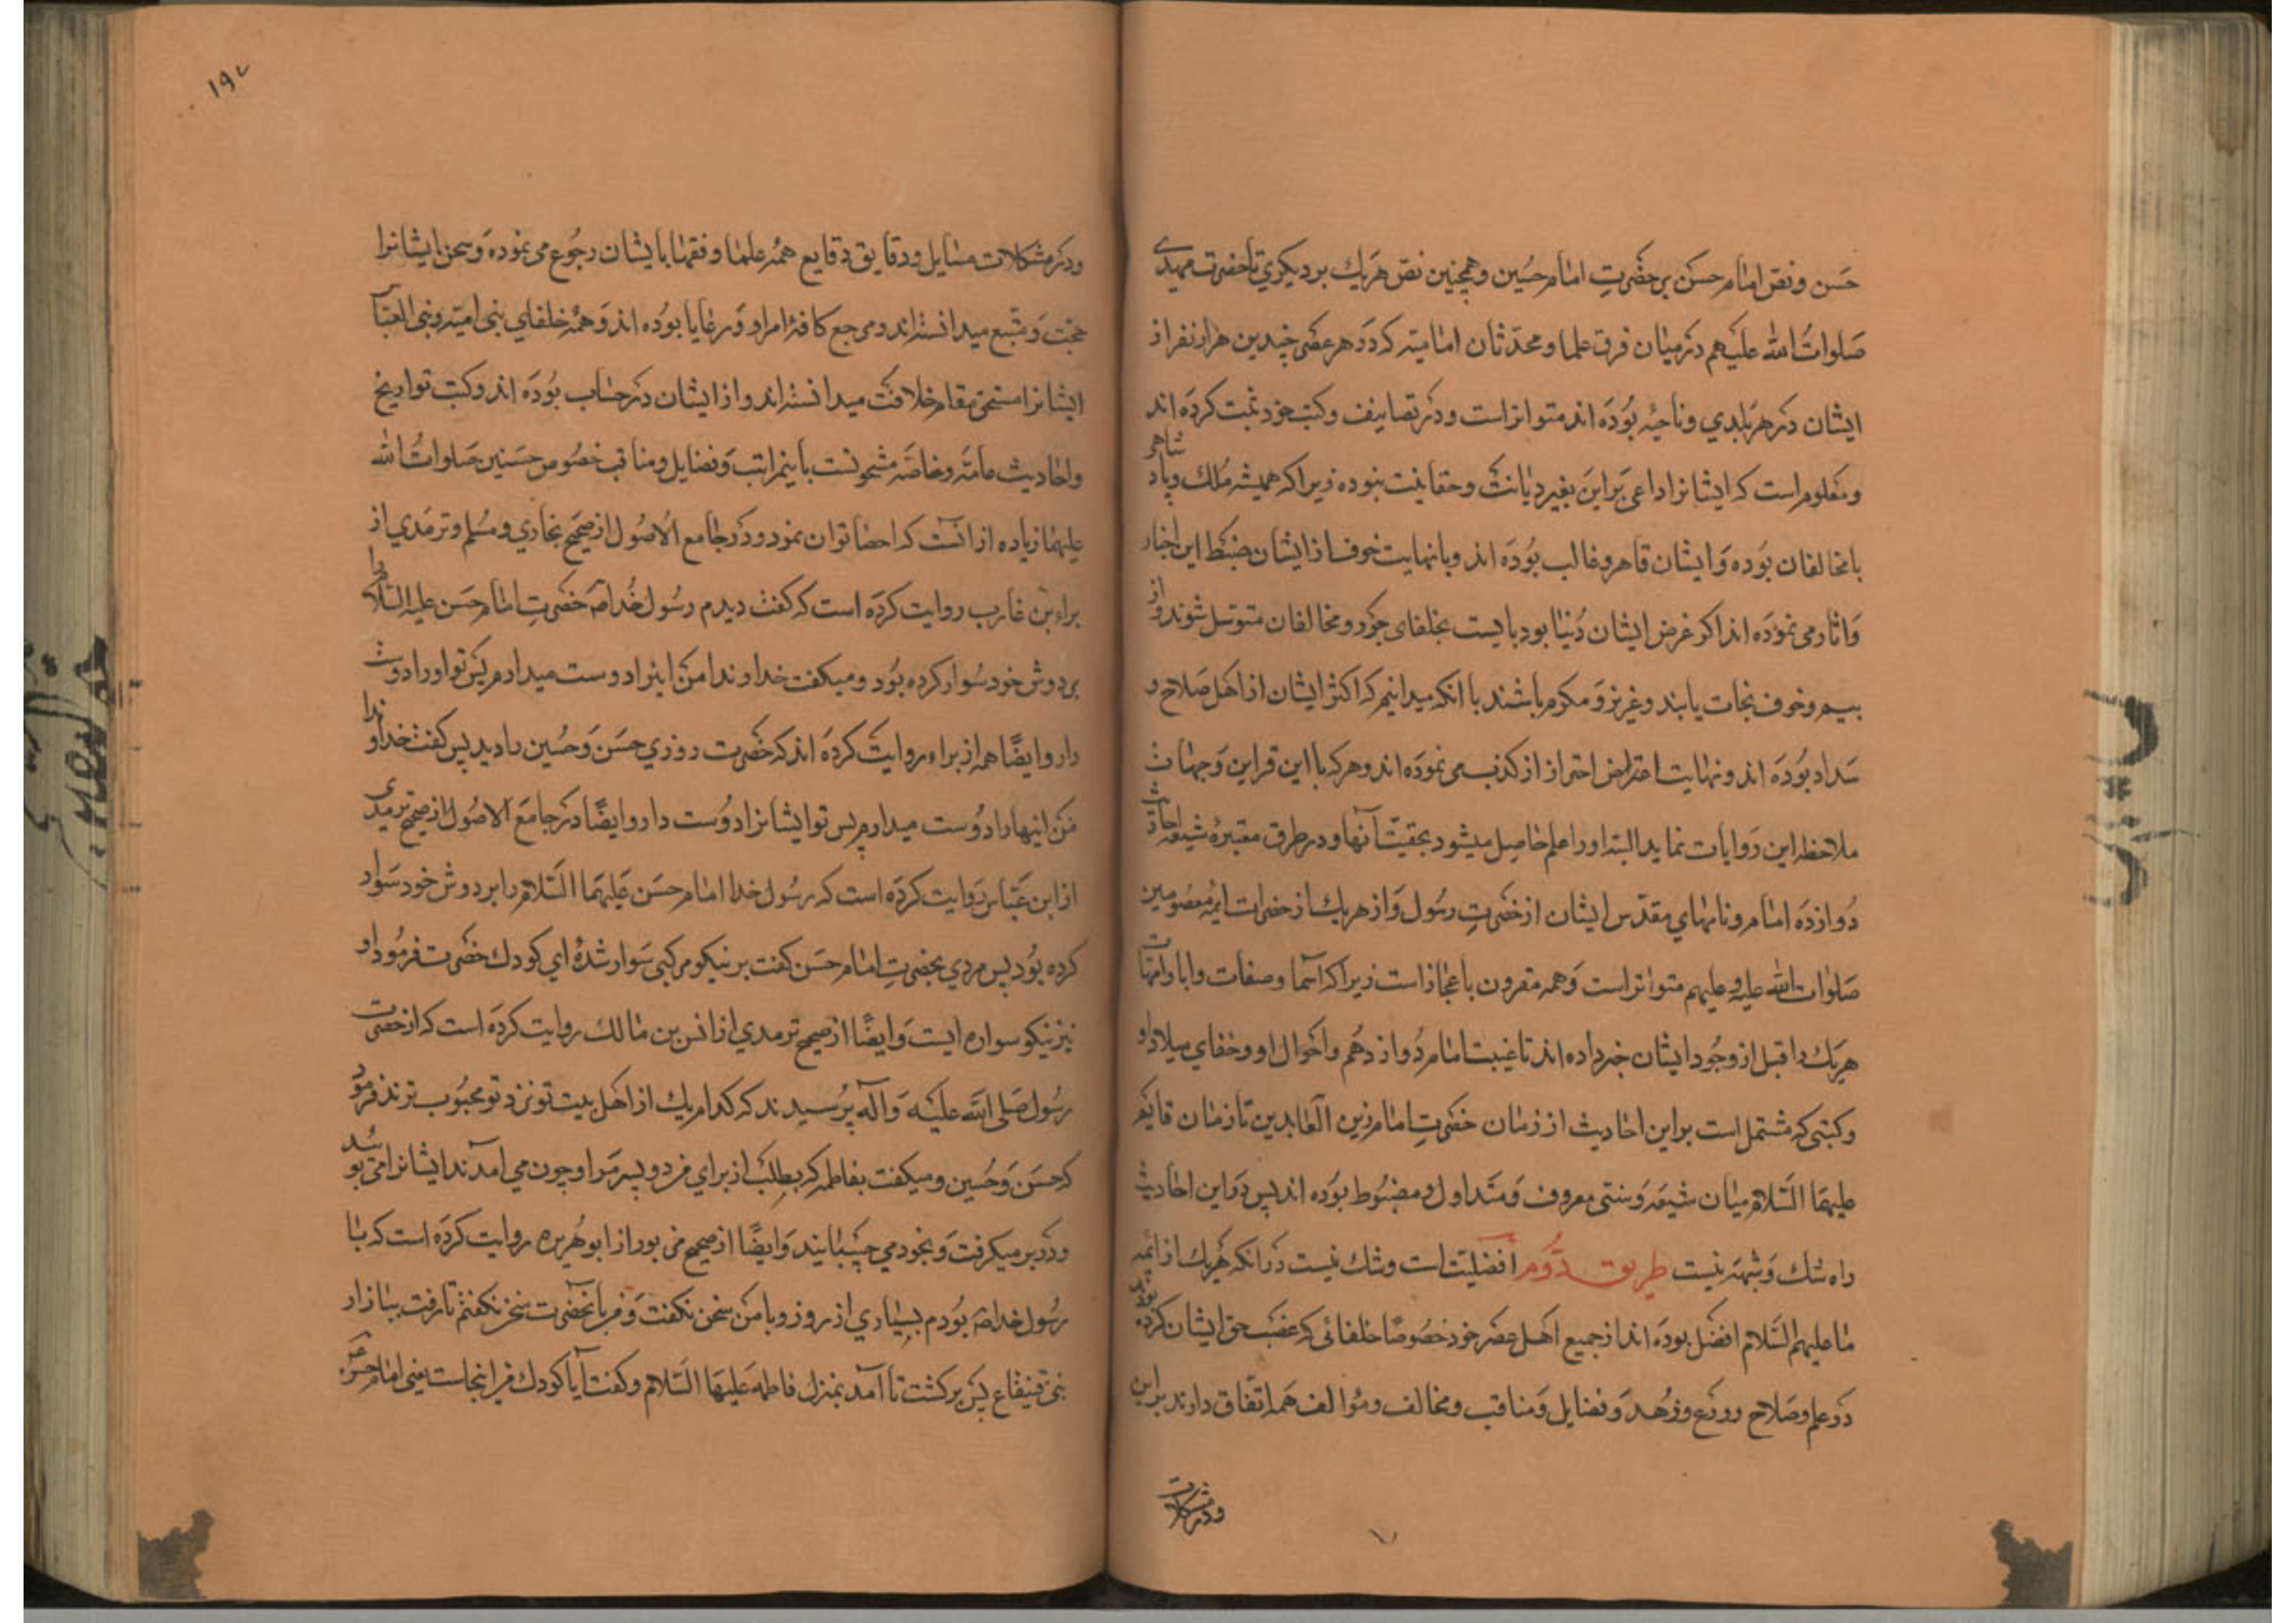 حسن و نص امام حسن بر حضرت امام حسین و همچنین نص هر یک بر دیکری تا حضرت مهدی
صلوات الله علیهم در میان فرق علما و محدثان امامیه که در هر عصری چندین هزار نفر از
ایشان در هر بلدی و ناحیه بوده اند متواتر است و در تصانیف و کتب خود ثبت کرده اند
و معلوم است که ایشانرا داعی بر این بغیر دیانت و حقانیت نبوده زیرا که همیشه ملک و پادشاهی
با مخالفان بوده و ایشان قاهر و غالب بوده اند و با نهایت خوف از ایشان ضبط این اخبار
و اثار می نموده اند اکر غرض ایشان دنیا بود بایست بخلفای جور و مخالفان متوسل شوند و از
بیم و خوف نجات یابند و عزیز و مکرم باشند با انکه میدانیم که اکثر ایشان از اهل صلاح و
سداد بوده اند و نهایت احتراز از کذب می نموده اند و هر که با این قراین و جهات
ملاحظه این روایات نماید البته او را علم حاصل میشود بحقیت آنها و در طرق معتبرهٔ شیعه احادیث
دوازده امام و نامهای مقدس ایشان از حضرت رسول و از هر یک از حضرات ایمه معصومین
صلوات الله علیه و علیهم متواتر است و همه مقرون باعجاز است زیرا که آسما و صفات و ابا و امهات
هر یک را قبل از وجود ایشان خبر داده اند تا غیبت امام دوازدهم و احوال او و خفای میلاد او
و کتبی که مشتمل است بر این احادیث از زمان حضرت امام زین العابدین تا زمان قایم
علیهما السلام میان شیعه و سنی معروف و متداول و مضبوط بوده اند پس در این احادیث
راه شک و شبهه نیست طریق دوم افضلیت است و شک نیست در انکه هر یک از ائمه
ما علیهم السلام افضل بوده اند از جمیع اهل عصر خود خصوصا خلفائی که غصب حق ایشان کرده بودند
در علم و صلاح و ورع و زهد و فضایل و مناقب و مخالف و مؤالف همه اتفاق دارند بر این
و در مشکلات
١٩٢
و در مشکلات مسایل و دقایق وقایع همه علما و فقها بایشان رجوع می نموده و سخن ایشانرا
حجت و متبع میدانسته اند و مرجع کافهٔ امرا و رعایا بوده اند و همه خلفای بنی امیه و بنی العباس
ایشانرا مستحق مقام خلافت میدانسته اند و از ایشان در حساب بوده اند و کتب تواریخ
و احادیث عامه و خاصه مشحونست باینمراتب و فضایل و مناقب خصوص حسنین صلوات الله
علیهما زیاده از انست که احصا توان نمود و در جامع الاصول از صحیح بخاری و مسلم و ترمذی از
براء بن عازب روایت کرده است که کفت دیدم رسول خدا ص حضرت امام حسن علیه السلام را
بر دوش خود سوار کرده بود و میکفت خداوندا من اینرا دوست میدارم پس تو او را دوست
دار و ایضًا هم از براء روایت کرده اند که حضرت روزی حسن و حسین را دید پس کفت خداوندا
من اینها را دوست میدارم پس تو ایشانرا دوست دار و ایضًا در جامع الاصول از صحیح ترمذی
از ابن عباس روایت کرده است که رسول خدا امام حسن علیهما السلام را بر دوش خود سوار
کرده بود پس مردی بحضرت امام حسن کفت بر نیکو مرکبی سوار شدهٔ ای کودک حضرت فرمود او
نیز نیکو سواره ایست و ایضًا از صحیح ترمذی از انس بن مالک روایت کرده است که از حضرت
رسول صلی الله علیه و آله پرسیدند که کدام یک از اهل بیت تو نزد تو محبوب ترند فرمود
که حسن و حسین و میکفت بفاطمه که بطلب از برای من دو پسر مرا و چون می آمدند ایشانرا می بوئید
و در بر میکرفت و بخود می چسبانید و ایضًا از صحیح مزبور از ابو هریره روایت کرده است که با
رسول خدا ص بودم بسیاری از روز و با من سخن نکفت و من بآنحضرت سخن نکفتم تا رفت ببازار
بنی قینقاع پس برکشت تا آمد بمنزل فاطمه علیها السلام و کفت آیا کودک من اینجاست یعنی امام حسن